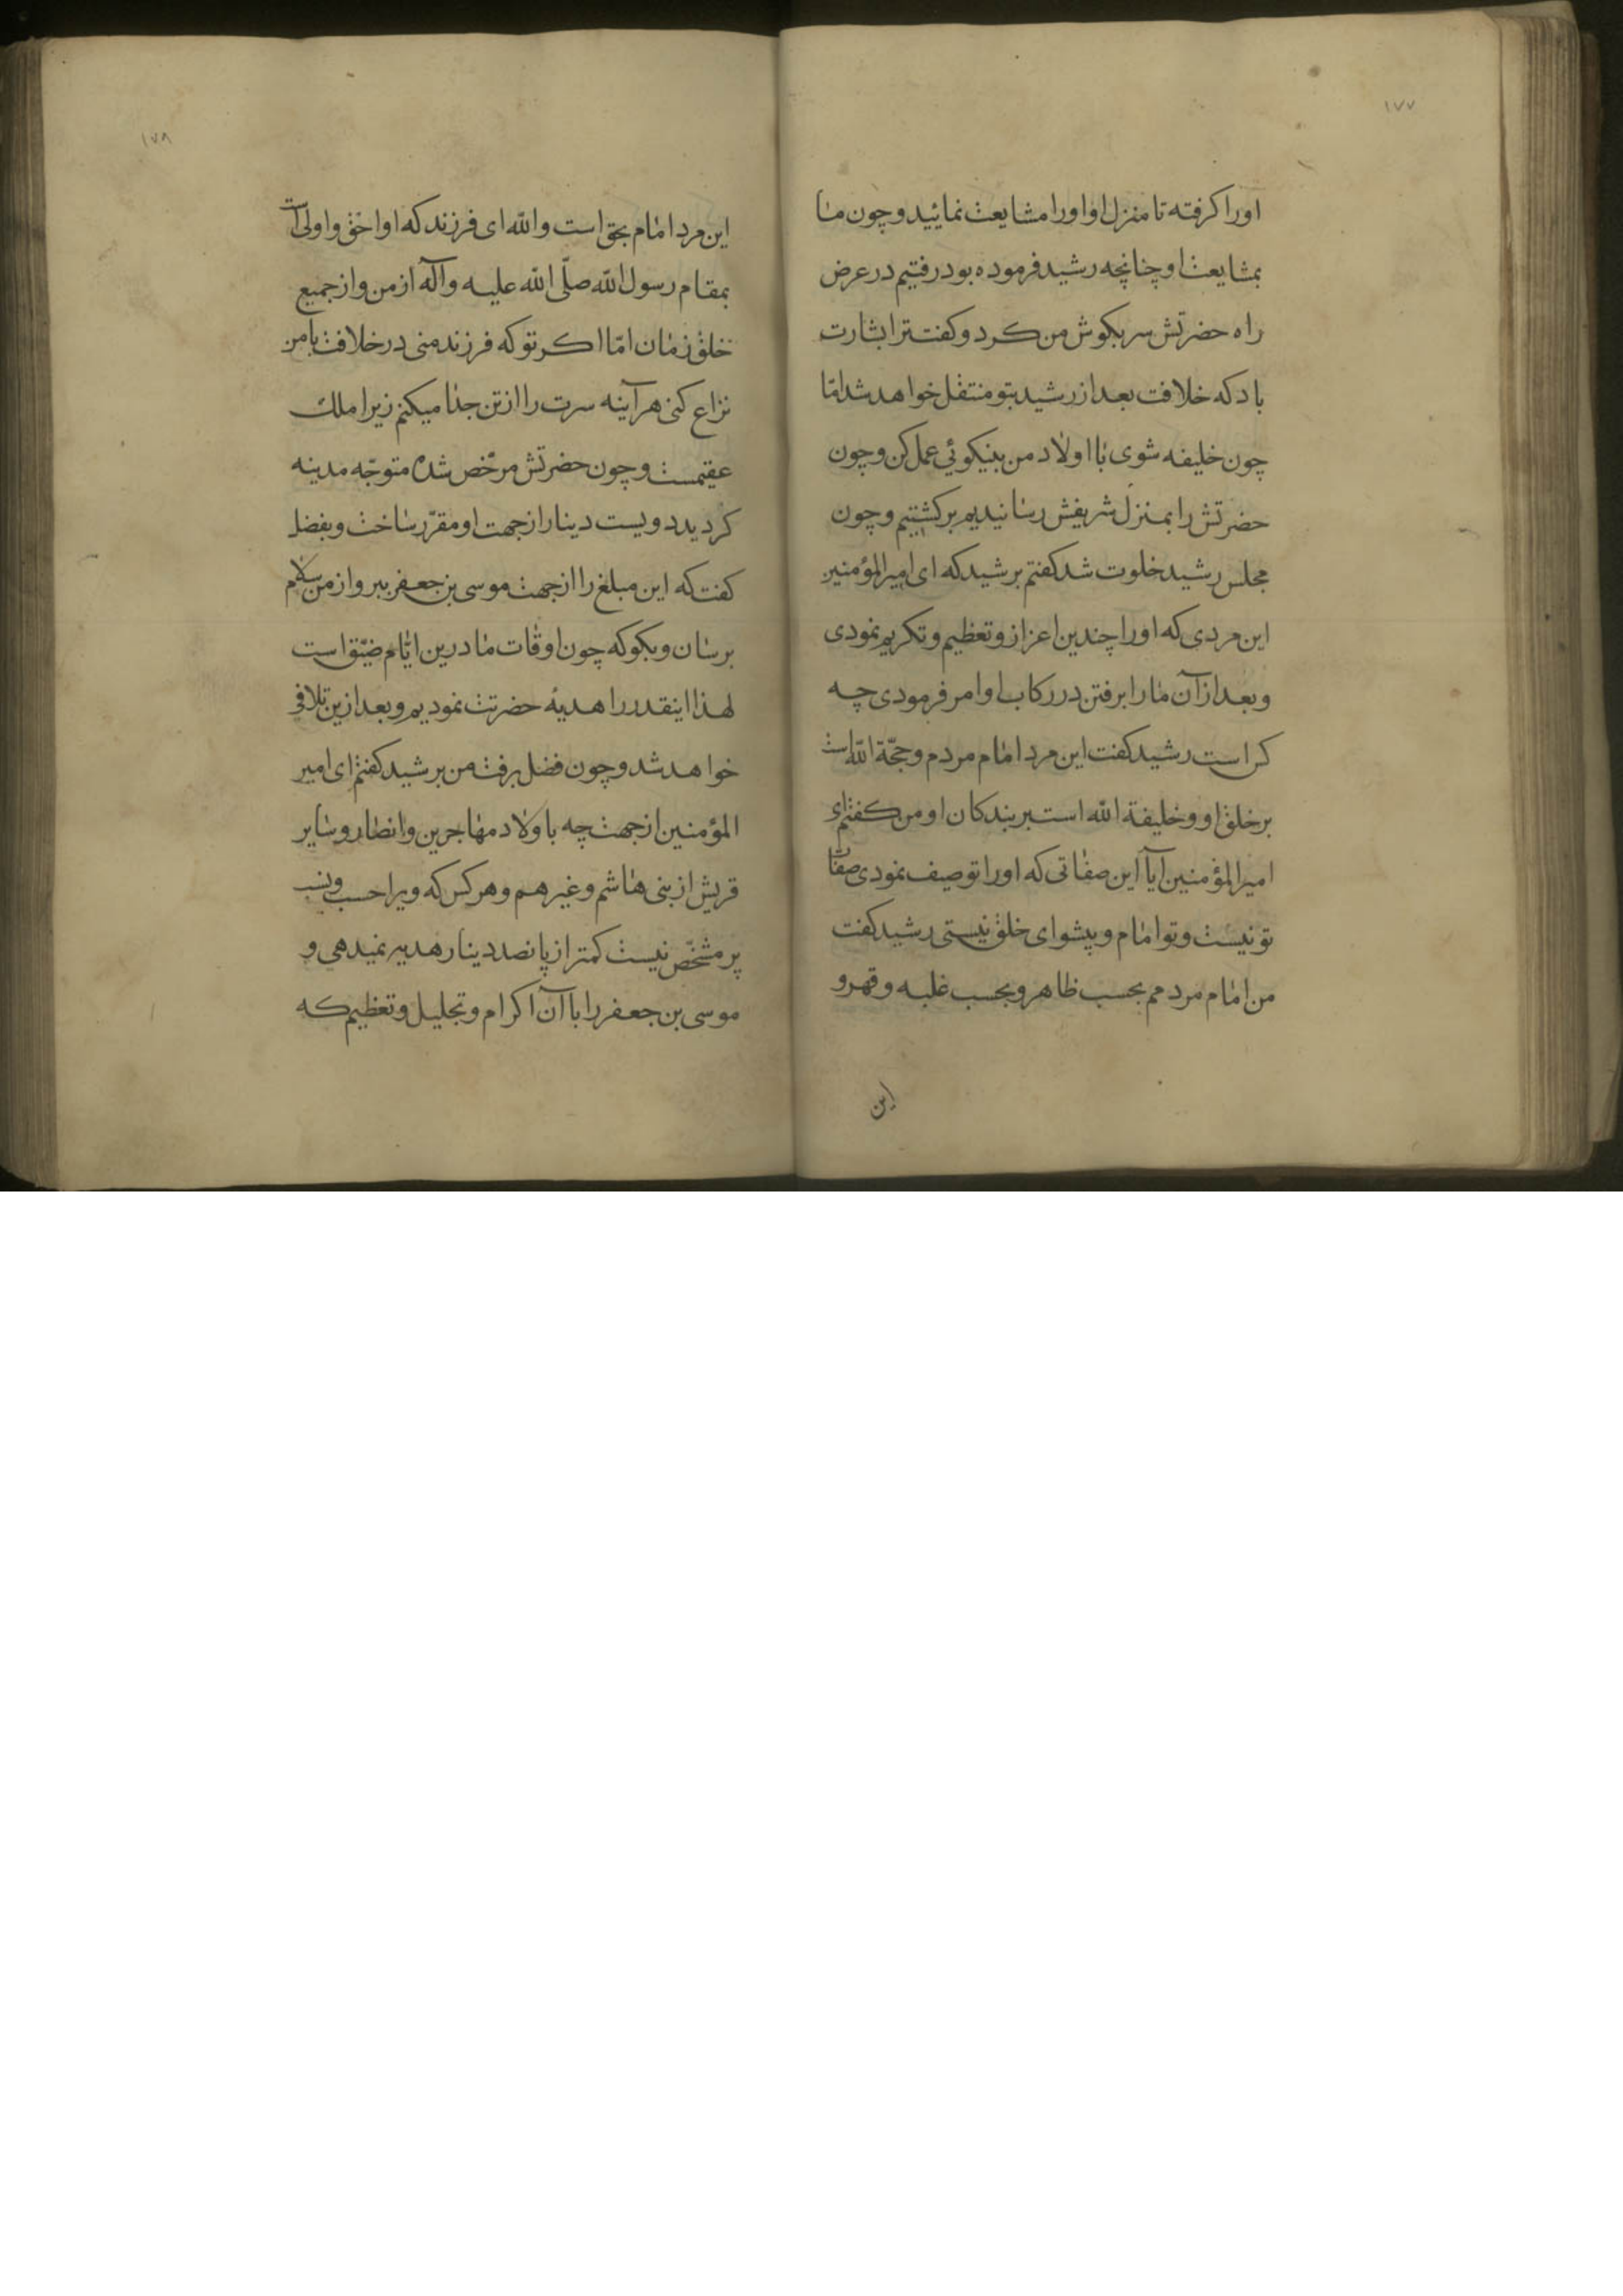 ۱۷۷
اورا کرفته تا منزل او اورا مشایعت نمائید و چون ما
بمشایعت او چنانچه رشید فرموده بود رفتیم در عرض
راه حضرتش سر بکوش من کرد و کفت ترا بشارت
باد که خلافت بعد از رشید بتو منتقل خواهد شد امّا
چون خلیفه شوی با اولاد من بنیکوئی عمل کن و چون
حضرتش را بمنزل شریفش رسانیدیم برکشتیم و چون
مجلس رشید خلوت شد کفتم برشید که ای امیرالمؤمنین
این مردی که اورا چندین اعزاز و تعظیم و تکریم نمودی
و بعد از آن مارا برفتن در رکاب او امر فرمودی چه
کس است رشید کفت این مرد امام مردم و حجّة اللّه است
بر خلق او و خلیفة اللّه است بر بندکان او من کفتم ای
امیرالمؤمنین آیا این صفاتی که اورا توصیف نمودی صفات
تو نیست و تو امام و پیشوای خلق نیستی رشید کفت
من امام مردمم بحسب ظاهر و بحسب غلبه و قهر و
این
۱۷۸
این مرد امام بحق است واللّه ای فرزند که او احقّ و اولی است
بمقام رسول اللّه صلّی اللّه علیه وآله از من و از جمیع
خلق زمان امّا اکر تو که فرزند منی در خلافت با من
نزاع کنی هرآینه سرت را از تن جدا میکنم زیرا ملک
عقیمست و چون حضرتش مرخّص شده متوجّه مدینه
کردید دویست دینار از جهت او مقرّر ساخت و بفضل
کفت که این مبلغ را از جهت موسی بن جعفر ببر و از من سلام
برسان و بکو که چون اوقات ما درین ایّام ضیّق است
لهذا اینقدر را هدیهٔ حضرتت نمودیم و بعد ازین تلافی
خواهد شد و چون فضل برفت من برشید کفتم ای امیر
المؤمنین از جهت چه باولاد مهاجرین و انصار و سایر
قریش از بنی هاشم و غیرهم و هر کس که ویرا حسب و نسب
پر مشخّص نیست کمتر از پانصد دینار هدیه نمیدهی و
موسی بن جعفر را با آن اکرام و تجلیل و تعظیم که